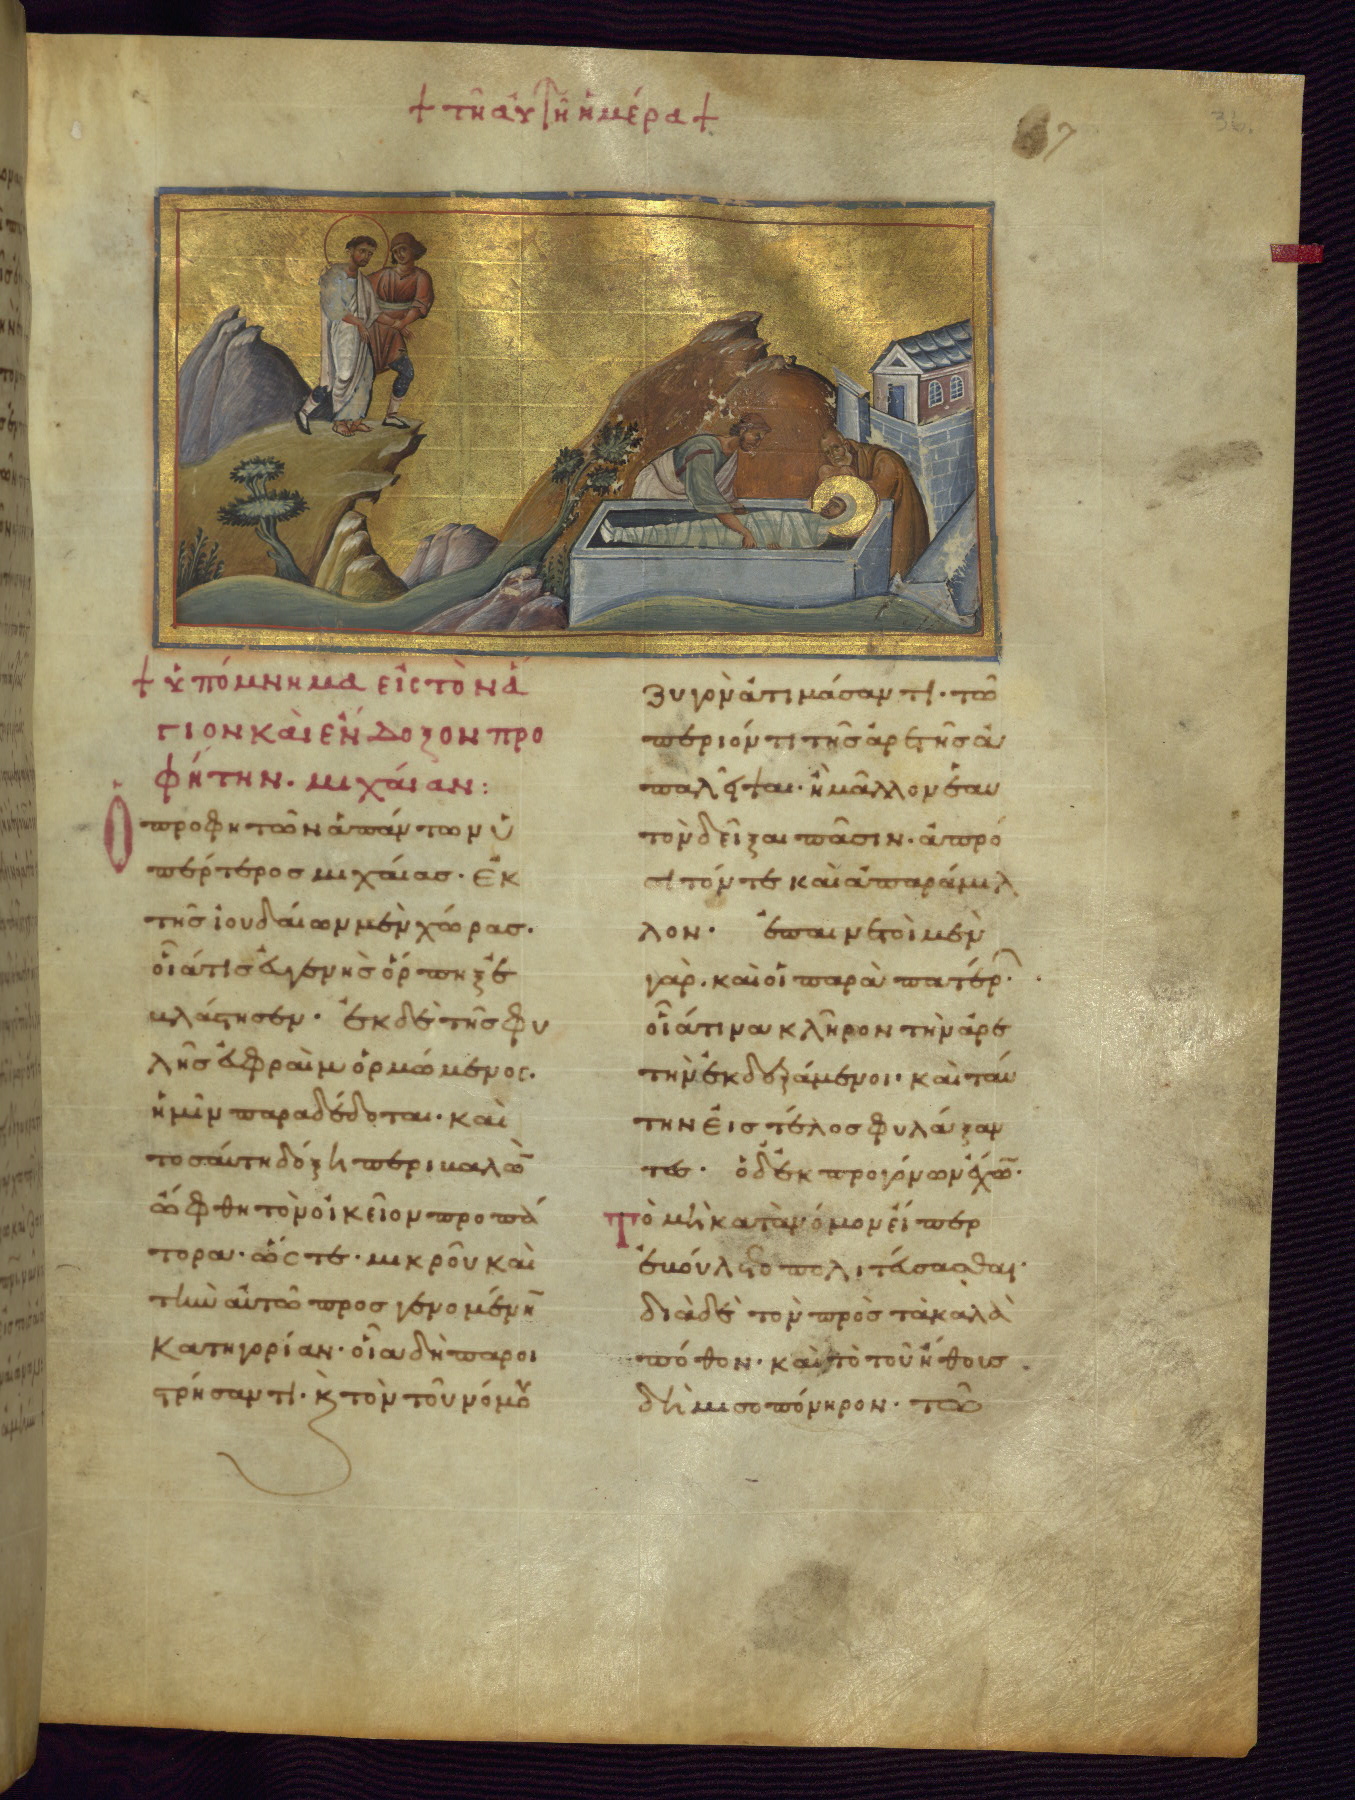 + τῆ αὐτῆ ἡμέρα +
36.
+ ὑπόμνημα εἰς τὸν ἅ
γιον καὶ ἔνδοξον προ
φήτην. μιχαίαν:
Ὁ προφητῶν ἁπάντων ὑ
πέρτερος μιχαίας. ἐκ
τῆς ἰουδαίων μὲν χώρας.
οἷά τις εὐγενὴς ὄρπηξ ἐ
βλάστησεν. ἐκ δὲ τῆς φυ
λῆς ἐφραὶμ ὁρμώμενος.
ἡμῖν παραδέδοται. καὶ
τοσαύτη δόξη περικαλῶ
ὤφθη τὸν οἰκεῖον προπά
τορα. ὥστε. μικροῦ καὶ
τὴν αὐτῶ προσγενομένην
κατηγορίαν. οἷα δὴ παροι
στρήσαντι. κ τὸν τοῦ νόμου
ζυγὸν ἀτιμάσαντι. τῶ
περιόντι τῆς ἀρετῆς ἀ
παλεῖψαι. ἢ μᾶλλον ἑαυ
τὸν δεῖξαι πᾶσιν. ἀπρό
σιτόν τε καὶ ἀπαράμιλ
λον. ἐπαινετοὶ μὲν
γὰρ. καὶ οἱ παρὰ πατέρων.
οἷά τινα κλῆρον τὴν ἀρε
τὴν ἐκδεξάμενοι. καὶ ταύ
την εἰς τέλος φυλάξαν
τες. ὁ δ' ἐκ προγόνων ἔχων.
Τὸ μὴ κατὰ νόμον εἴπερ
ἐβούλετο πολιτεύσασθαι.
διὰ δὲ τὸν πρὸς τὰ καλὰ
πόθον. καὶ τὸ τοῦ ἤθους
δὴ μισοπόνηρον. τῶ